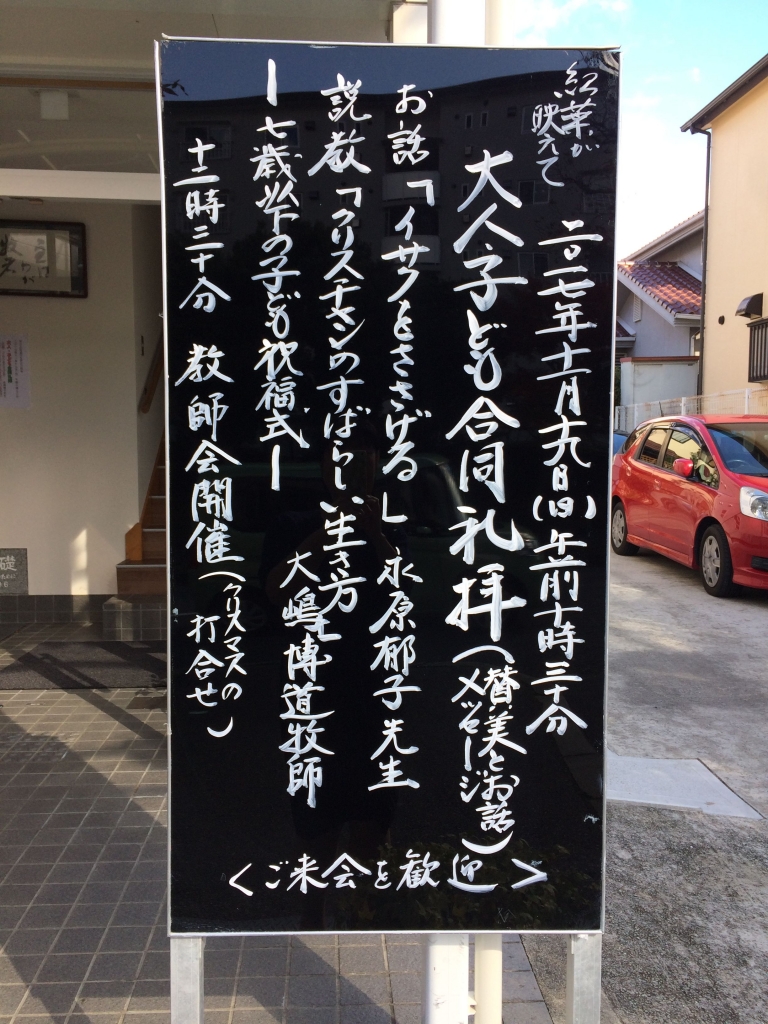 紅葉が
映えて
二〇一七年十一月十九日(日)午前十時三十分
大人子ども合同礼拝(賛美とお話
メッセージ)
お話「イサクをささげる」 永原郁子先生
説教「クリスチャンのすばらしい生き方」
大嶋博道牧師
ー七歳以下の子ども祝福式ー
十二時三十分 教師会開催(クリスマスの
打合せ)
<ご来会を歓迎>